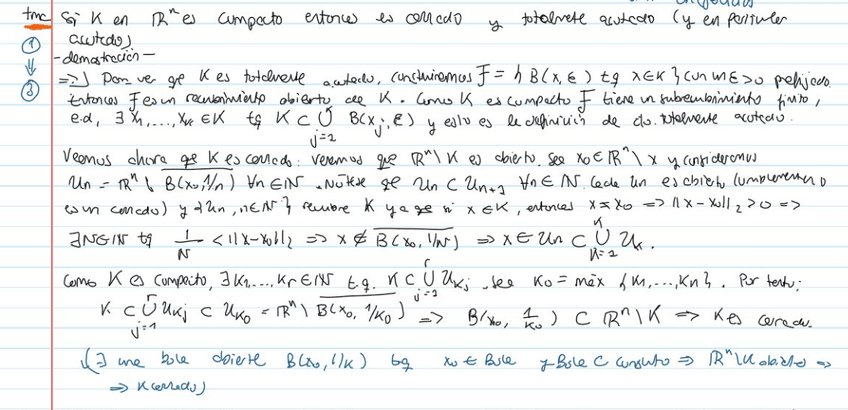 tma Si K en ℝⁿ es compacto entonces es cerrado y totalmente acotado (y en particular
① acotado)
⇓ -demostración-
③ =>) Para ver qe K es totalmente acotado, construiremos F = { B(x, ε) tq x∈K } con un ε>0 prefijado.
Entonces F es un recubrimiento abierto de K. Como K es compacto F tiene un subrecubrimiento finito,
e.d, ∃ x₁,...,xₖ ∈ K tq K ⊂ ∪ B(xⱼ, ε) y esto es la definición de cto. totalmente acotado.
Veamos ahora qe K es cerrado: veremos que ℝⁿ\K es abierto. Sea x₀∈ℝⁿ\x y consideramos
Un = ℝⁿ \ B(x₀,1/n) ∀n∈ℕ. Nótese qe Un ⊂ Un+1 ∀n∈ℕ. Cada Un es abierto (complemento
es un cerrado) y {Un, n∈ℕ} recubre K ya qe si x∈K, entonces x≠x₀ => ||x-x₀||₂ > 0 =>
∃N∈ℕ tq 1/N < ||x-x₀||₂ => x ∉ B(x₀,1/N) => x ∈ Un ⊂ ∪ Uk.
Como K es compacto, ∃ K₁,...,Kr ∈ℕ t.q. K ⊂ ∪ Ukj. Sea K₀ = máx {K₁,...,Kn}. Por tanto:
K ⊂ ∪ Ukj ⊂ Uk₀ = ℝⁿ \ B(x₀, 1/k₀) => B(x₀, 1/k₀) ⊂ ℝⁿ\K => K es cerrado.
(∃ una bola abierta B(x₀,1/k) tq x₀ ∈ Bola y Bola ⊂ conjunto => ℝⁿ\K abierto =>
=> K cerrado)